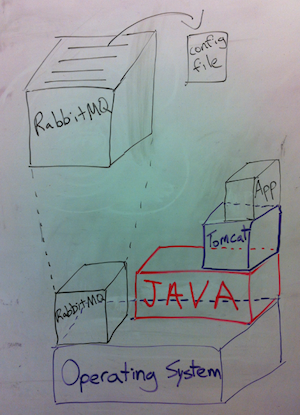 config
file
RabbitMQ
App
Tomcat
JAVA
RabbitMQ
Operating System